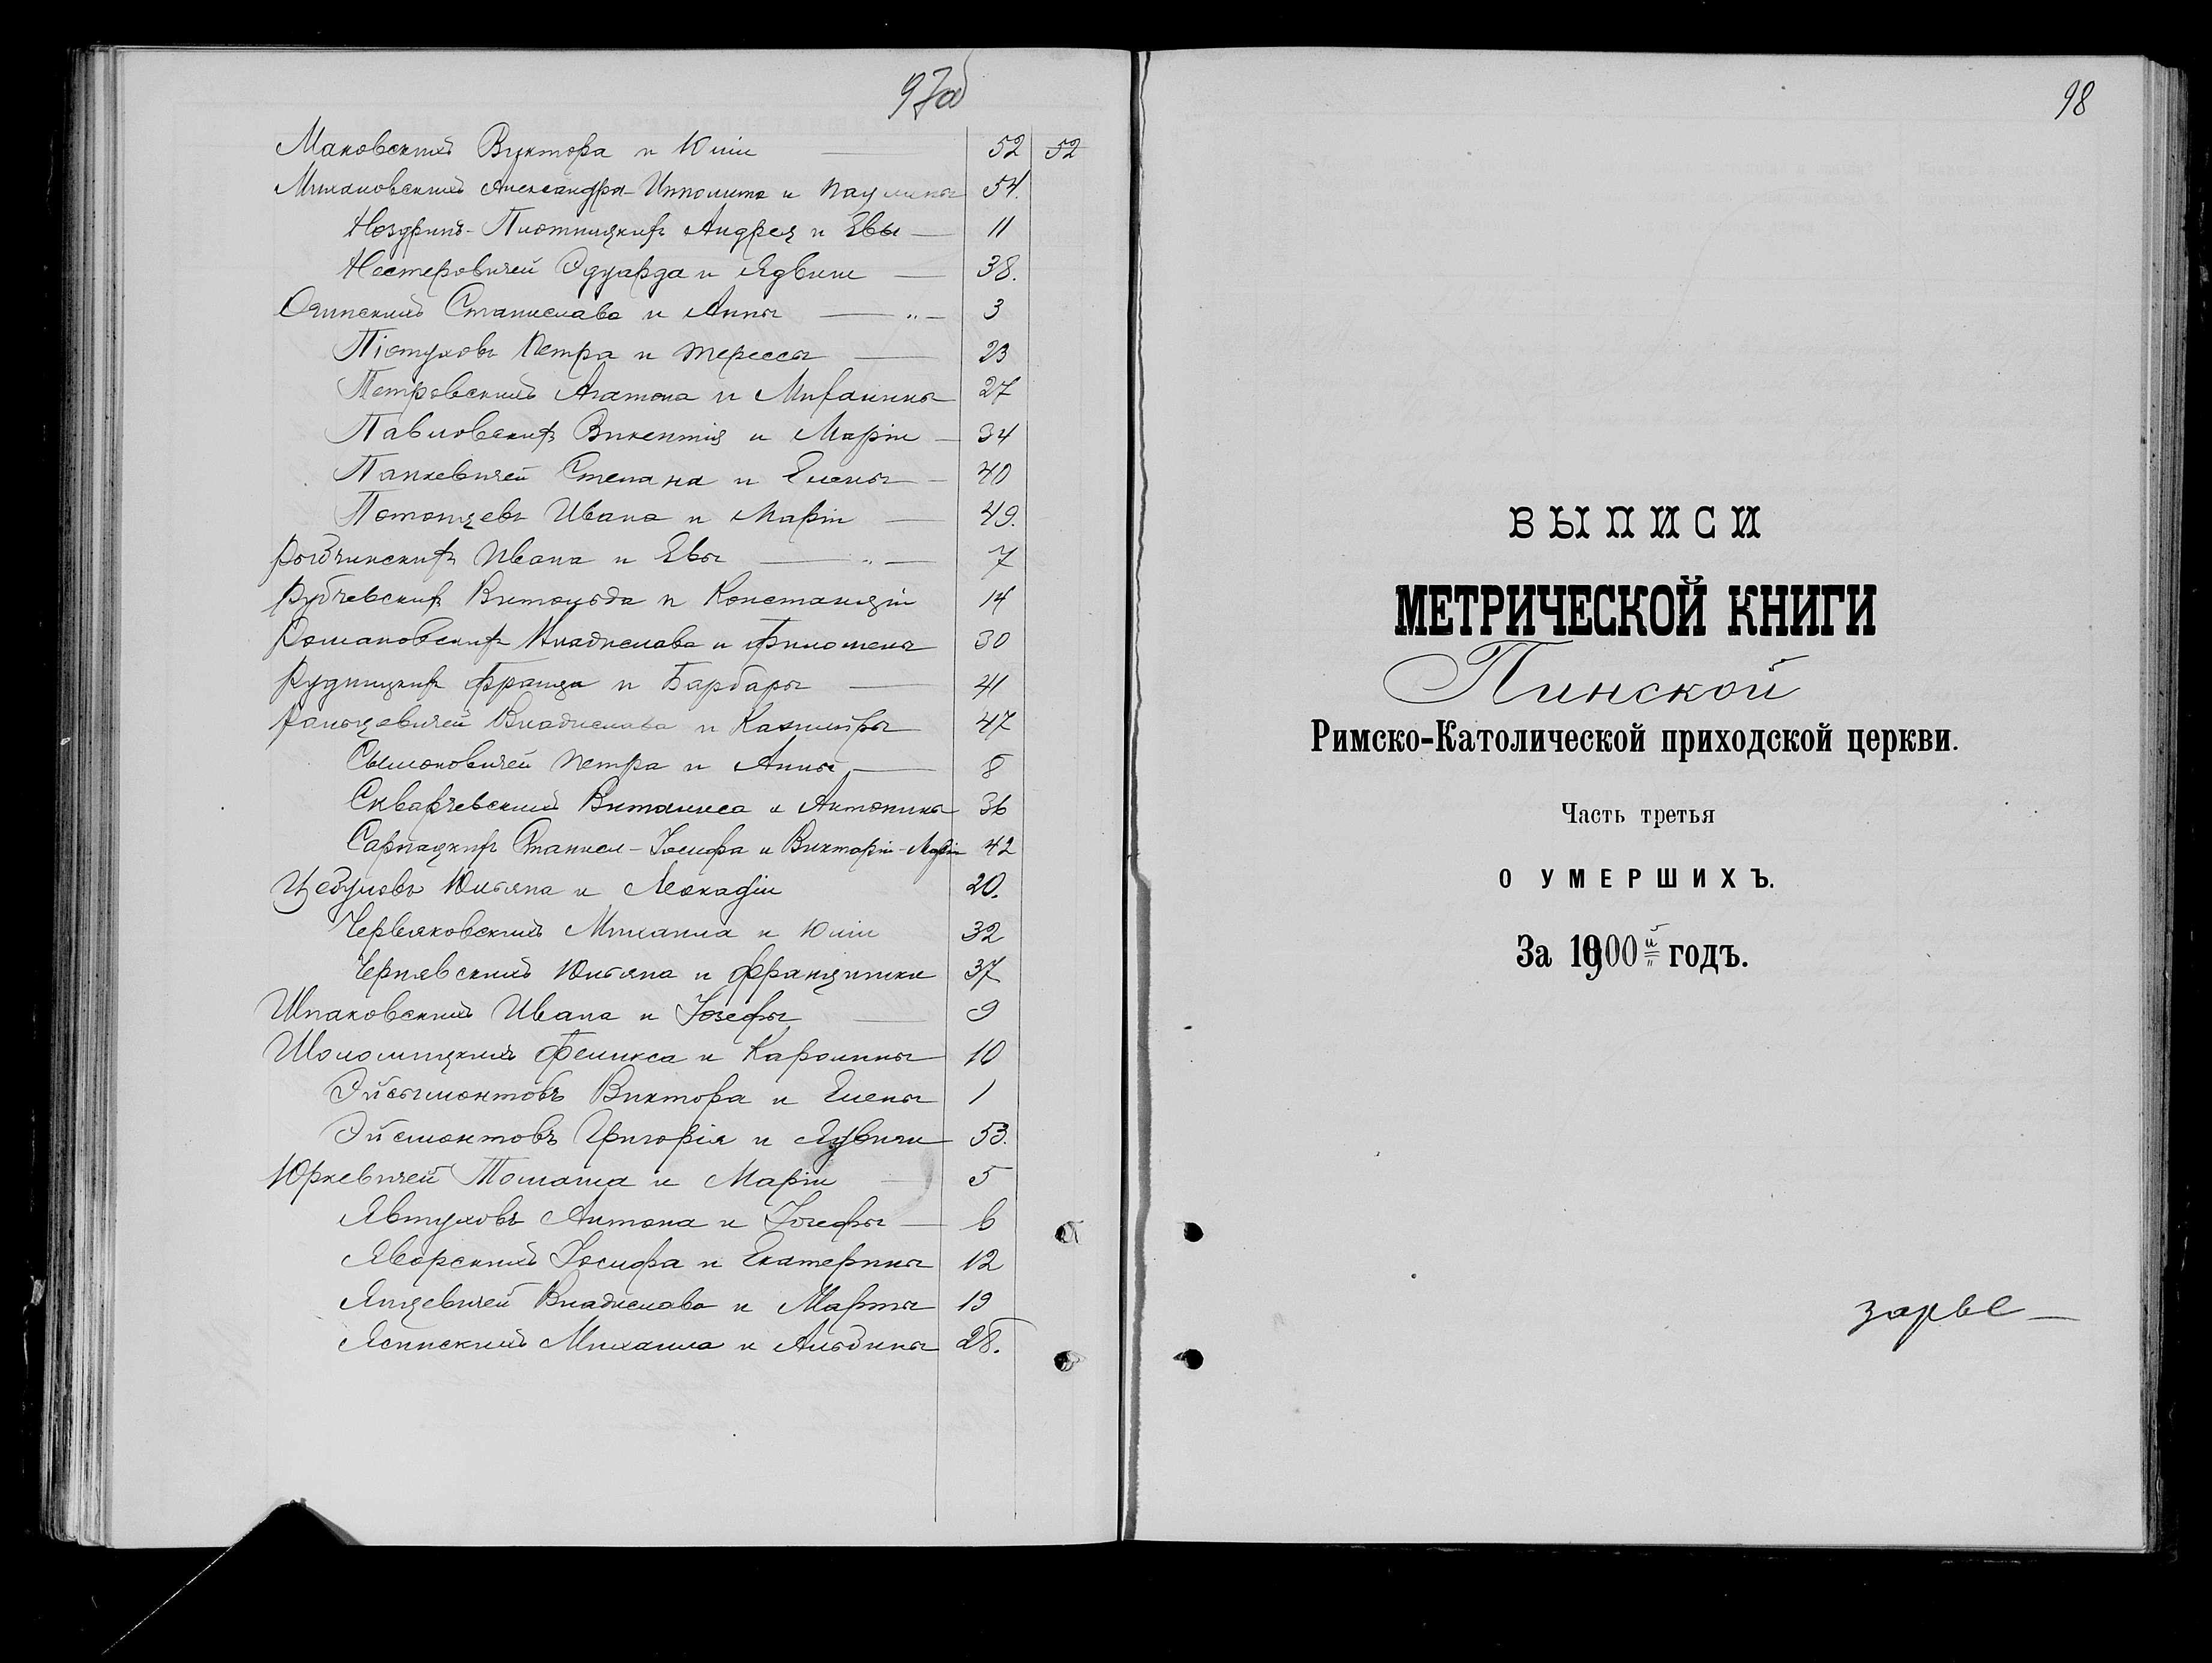 97об
Маковскихъ Виктора и Юліи 52 52
Михаловскихъ Александра-Ипполита и Паулины 54.
Ноздринъ-Плотницкихъ Андрея и Евы 11
Нестеровичей Эдуарда и Ядвиги 38.
Огинскихъ Станислава и Анны 3
Пѣтуховъ Петра и Терессы 23
Петровскихъ Агатона и 27
Павловскихъ Викентія и Маріи 34
Папкевичей Степана и Елены 40
Потопцевъ Ивана и Маріи 49.
Ивана и Евы 7
Рубчевскихъ Витольда и Констанціи 14
Романовскихъ Владислава и Филомены 30
Рудницкихъ Франца и Барбары 41
Рапцевичей Владислава и Казимиры 47
Сымоновичей Петра и Анны 8
Скварчевскихъ и Антонины 36
Сарнацкихъ Станисл-Іосифа и Викторіи-Маріи 42
Цебуловъ Юльяна и Леокадіи 20.
Червяковскихъ Михаила и Юліи 32
Чернявскихъ Юльяна и Францишки 37
Шпаковскихъ Ивана и Іозефы 9
Шоломицкихъ Феликса и Каролины 10
Эйсымонтовъ Виктора и Елены 1
Эйсмонтовъ Григорія и Ядвиги 53.
Юркевичей Томаша и Маріи 5
Явтуховъ Антона и Іозефы 6
Яворскихъ Іосифа и Екатерины 12
Янцевичей Владислава и Марты 19
Ясинскихъ Михаила и Альбины 28.
98
ВЫПИСИ
МЕТРИЧЕСКОЙ КНИГИ
Пинской
Римско-Католической приходской церкви.
Часть третья
О УМЕРШИХЪ.
За 1900й годъ.